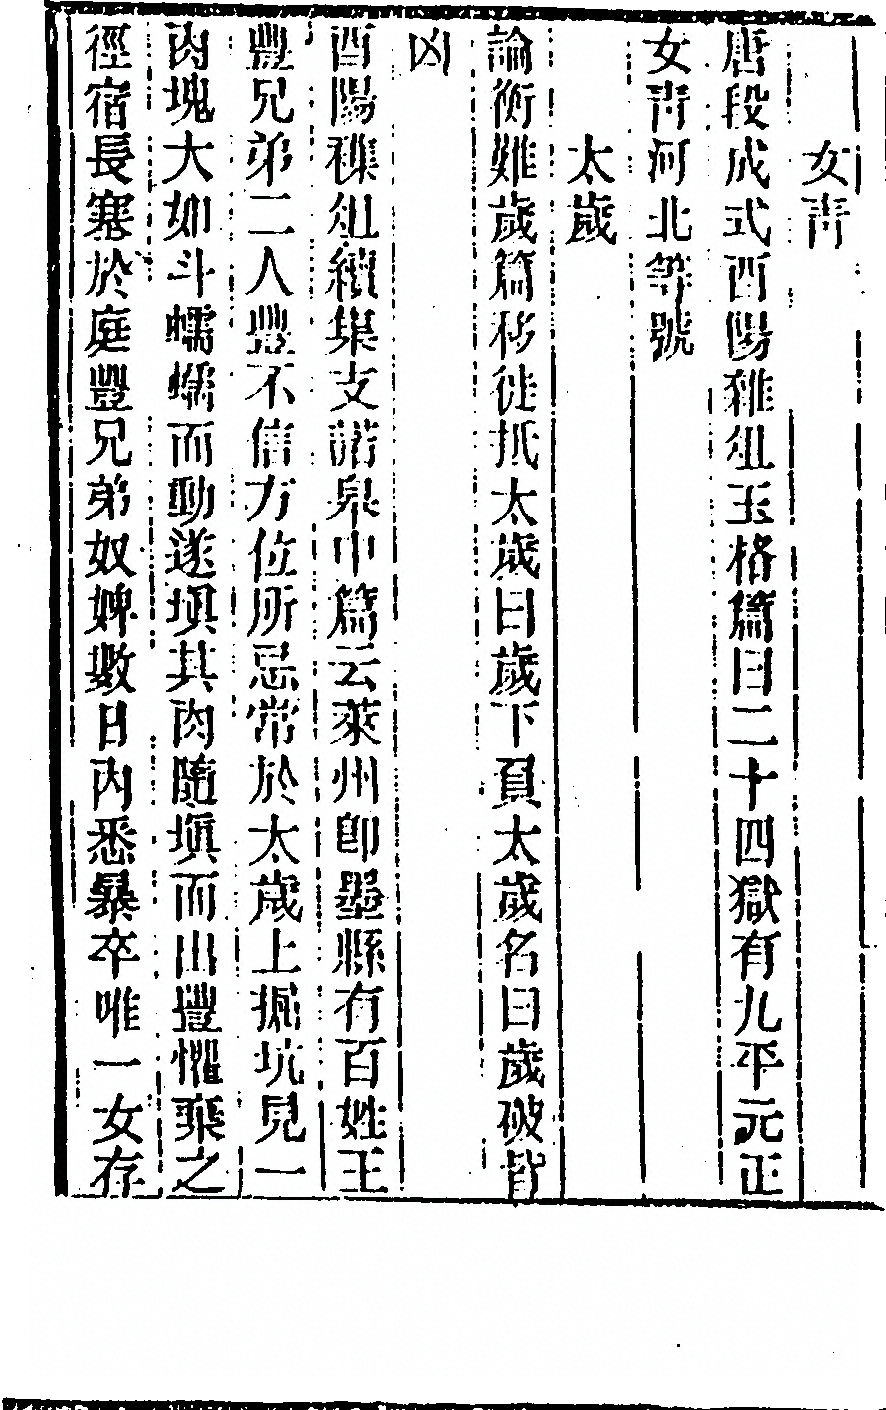 女靑
唐段成式酉陽雜俎玉格篇曰二十四獄有九平元正
女靑河北等號
太歲
論衡難歲篇移徙抵太歲曰歲下負太歲名曰歲破皆
凶
酉陽雜俎續集支諾皋中篇云萊州卽墨縣有百姓王
豐兄弟二人豐不信方位所忌常於太歲上掘坑見一
肉塊大如斗蠕蠕而動遂塡其肉隨塡而出豐懼棄之
徑宿長塞於庭豐兄弟奴婢數日內悉暴卒唯一女存